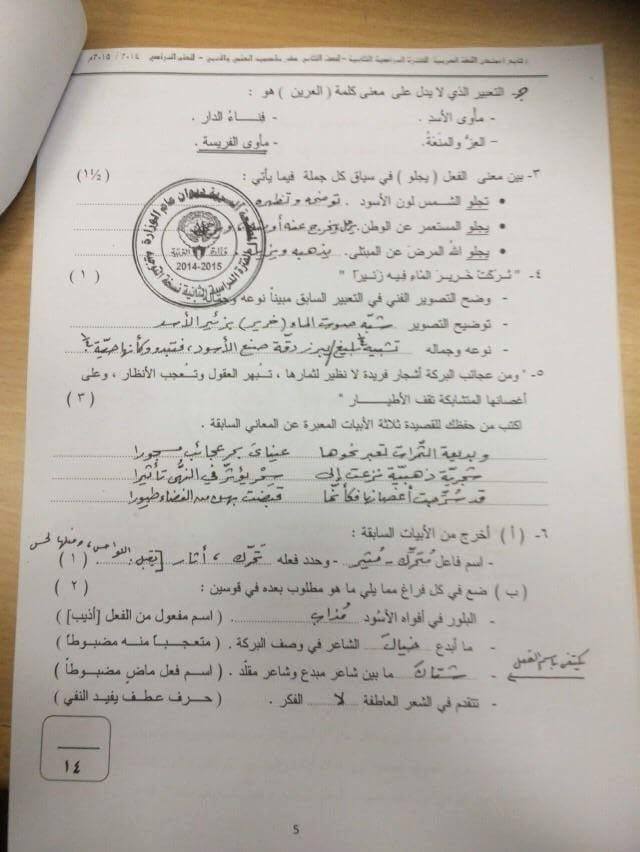 ( تابع ) امتحان اللغة العربية للفترة الدراسية الثانية - للصف الثاني عشر بقسميه العلمي والأدبي - للعام الدراسي ٢٠١٤ / ٢٠١٥م
ج- التعبير الذي لا يدل على معنى كلمة ( العرين ) هو :
- مأوى الأسد . - فناءُ الدار .
- العزُّ والمنَعَةُ. - مأوى الفريسة .
٣- بين معنى الفعل ( يجلو ) في سياق كل جملة فيما يأتي : (١½ )
• تجلو الشمس لون الأسود . توضحه وتظهره
• يجلو المستعمر عن الوطن. يخرج عنه
• يجلو الله المرضَ عن المبتلى. يذهبه
2014-2015
٤- " تركتْ خرير الماء فيه زئيرا " ( ١ )
- وضح التصوير الفني في التعبير السابق مبيناً نوعه وجماله
- توضيح التصوير شبّه صوت الماء (خرير) بزئير الأسد
- نوعه وجماله تشبيه بليغ / يبرز دقّة صنع الأسود ، فتبدو وكأنها حيّة ½
٥- "ومن عجائب البركة أشجار فريدة لا نظير لثمارها ، تبهر العقول وتُعجب الأنظار ، وعلى
أغصانها المتشابكة تقف الأطيار " ( ٣ )
اكتب من حفظك للقصيدة ثلاثة الأبيات المعبرة عن المعاني السابقة .
وبديعة الثمرات تعبر نحوها عيناي بحر عجائب مسجورا
شجرية ذهبيّة نزعت إلى سحر يؤثّر في النهى تأثيرا
قد سُرّحت أغصانها فكأنّما قبضت بهن من الفضاء طيورا
٦- ( أ ) أخرج من الأبيات السابقة :
- اسم فاعل مُتحرِّك - مُثير - وحدد فعله تحرّك ، أثار ( ١ )
( ب ) ضع في كل فراغ مما يلي ما هو مطلوب بعده في قوسين : ( ٢ )
- البلور في أفواه الأسُود مُذاب . ( اسم مفعول من الفعل [أذيب] )
- ما أبدع خيالَ الشاعر في وصف البركة . ( متعجباً منه مضبوطاً )
- شتّانَ ما بين شاعر مبدع وشاعر مقلّد . ( اسم فعل ماضٍ مضبوطاً ) يكتفى باسم الفعل
- تتقدم في الشعر العاطفة لا الفكر . ( حرف عطف يفيد النفي )
١٤
5